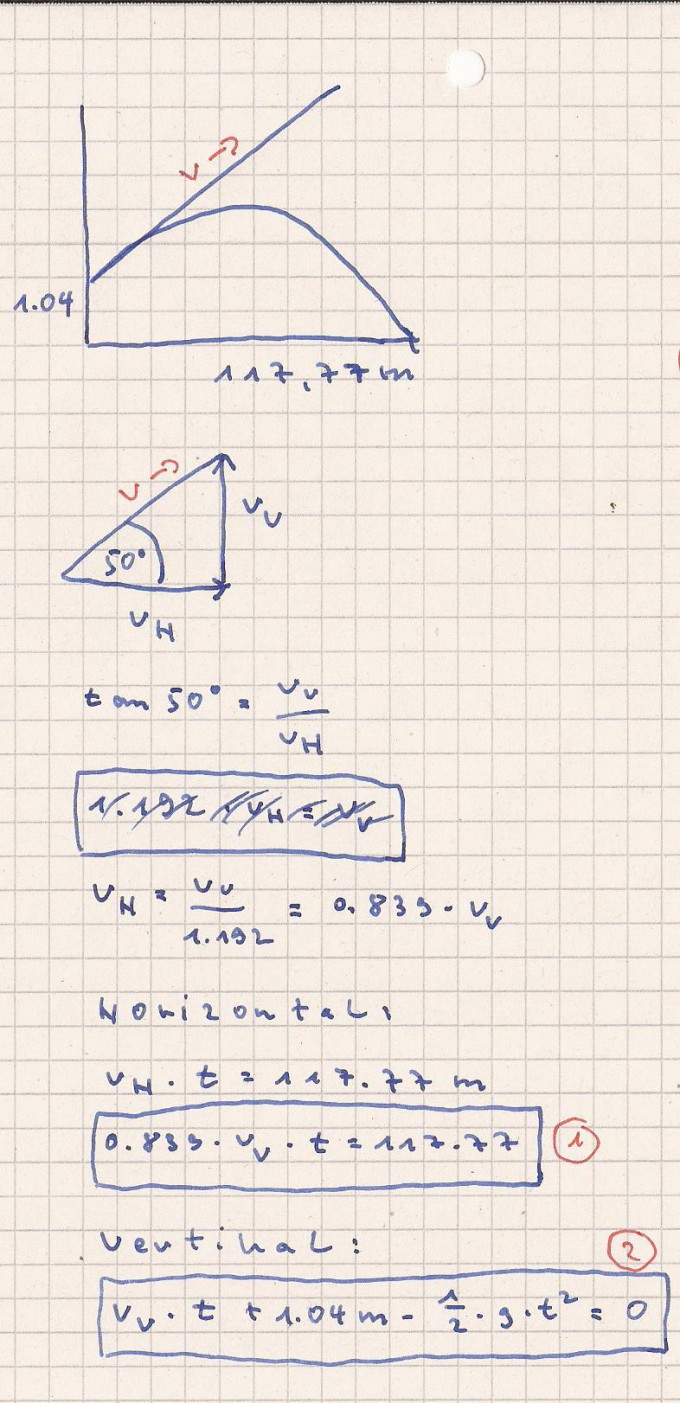 v →
1.04
117,77 m
v →
v_v
50°
v_H
tan 50° = v_v / v_H
1.192 · v_H = v_v
v_H = v_v / 1.192 = 0.839 · v_v
Horizontal:
v_H · t = 117.77 m
0.839 · v_v · t = 117.77 ①
Vertikal: ②
v_v · t + 1.04 m - 1/2 · g · t² = 0